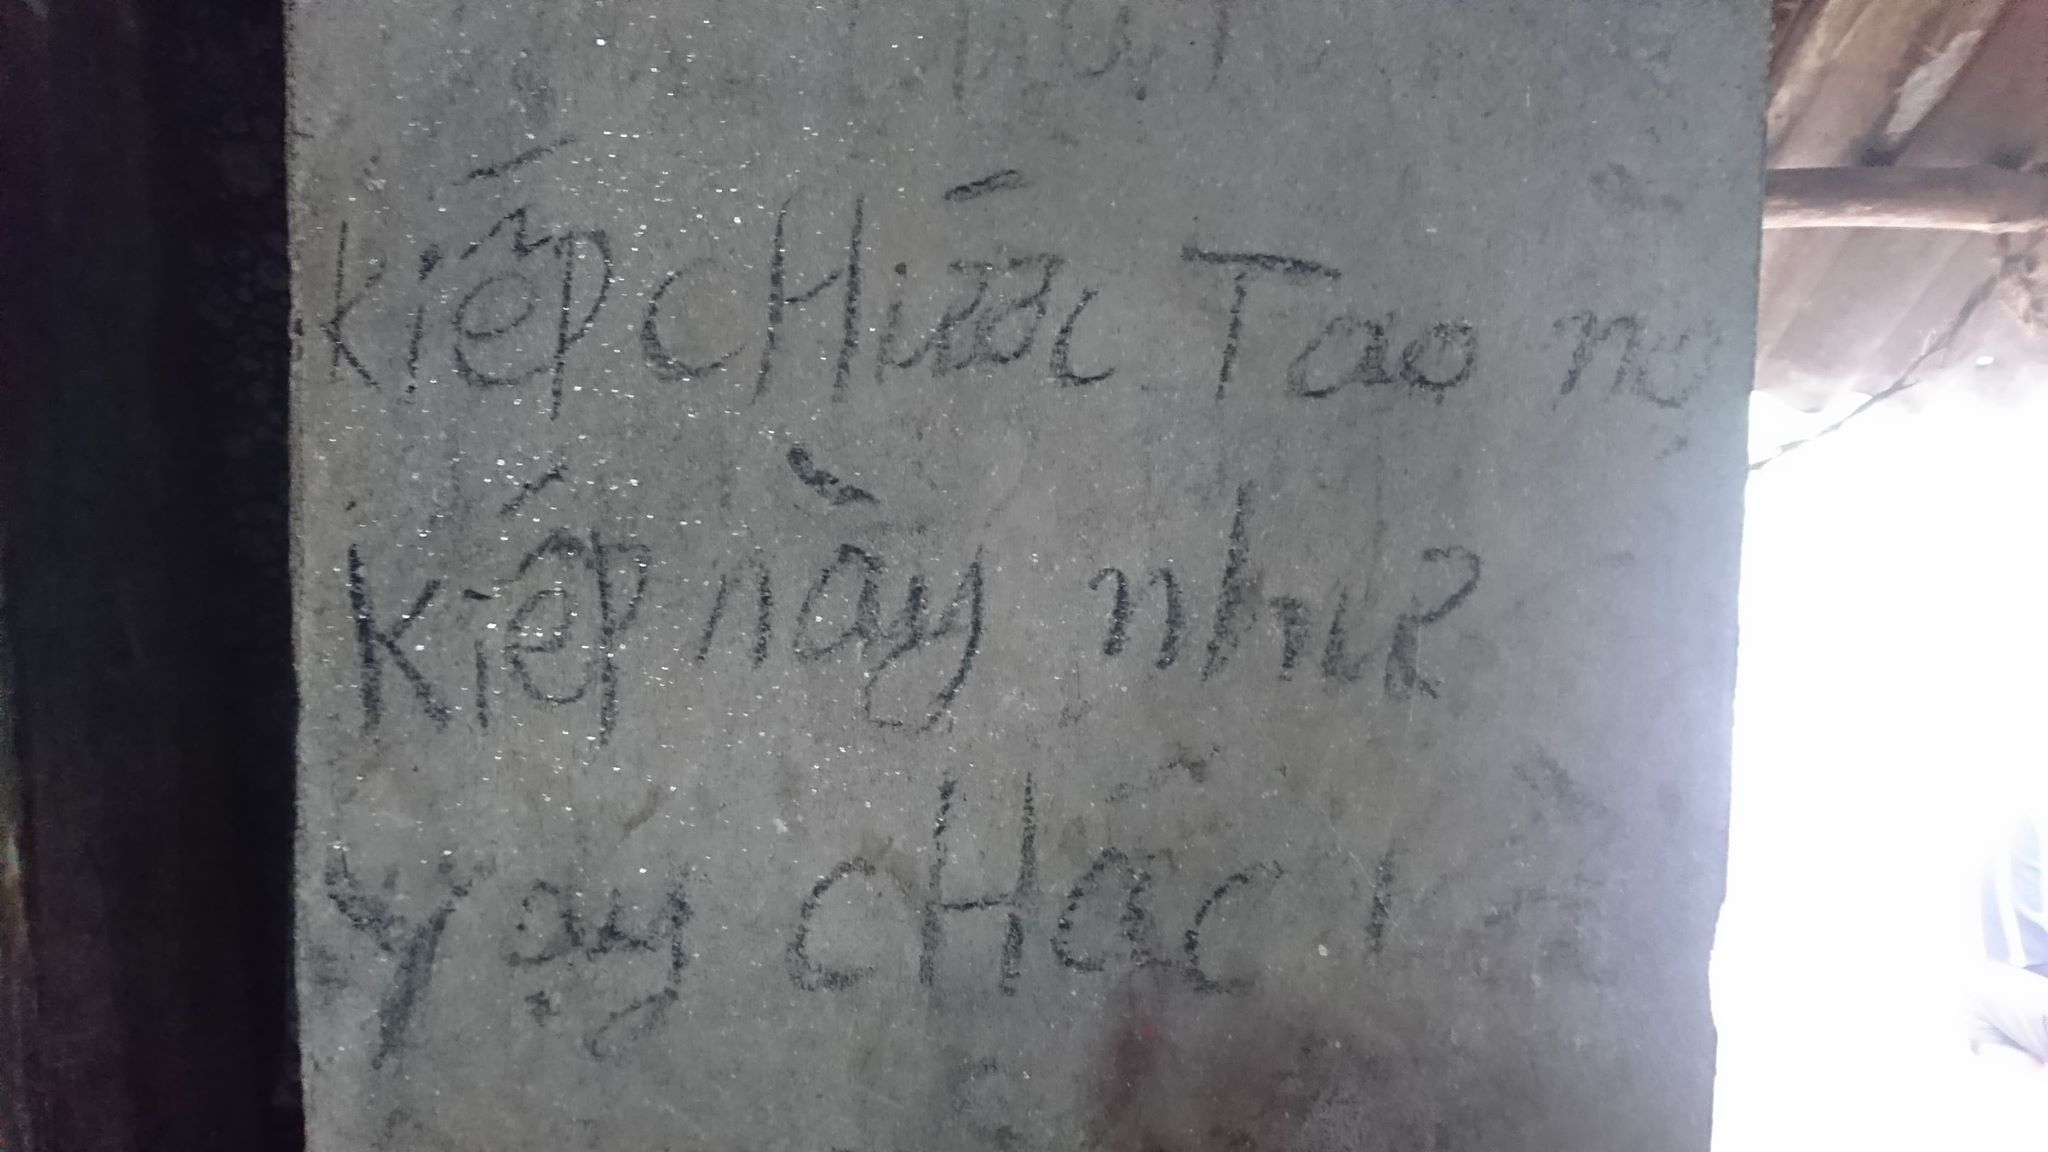 kiếp cHước Tao nợ
kiếp này như
Yạy cHắc l